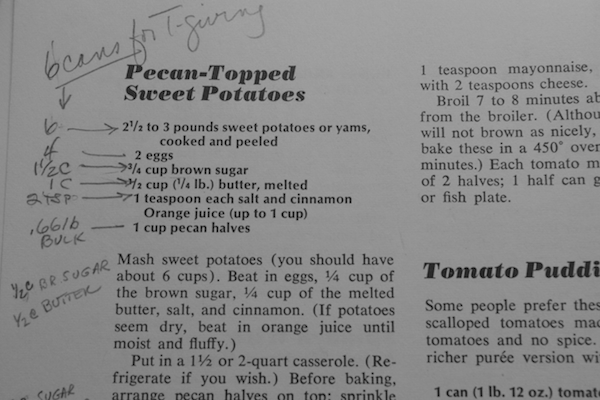 6 cans for T-giving
Pecan-Topped
Sweet Potatoes
6 2½ to 3 pounds sweet potatoes or yams,
cooked and peeled
4 2 eggs
1½ C ¾ cup brown sugar
1 C ½ cup (¼ lb.) butter, melted
2 TSP 1 teaspoon each salt and cinnamon
Orange juice (up to 1 cup)
.66 lb 1 cup pecan halves
BULK
Mash sweet potatoes (you should have
about 6 cups). Beat in eggs, ¼ cup of
the brown sugar, ¼ cup of the melted
butter, salt, and cinnamon. (If potatoes
seem dry, beat in orange juice until
moist and fluffy.)
Put in a 1½ or 2-quart casserole. (Re-
frigerate if you wish.) Before baking,
arrange pecan halves on top; sprinkle
½ C BR SUGAR
½ C BUTTER
SUGAR
1 teaspoon mayonnaise,
with 2 teaspoons cheese.
Broil 7 to 8 minutes ab
from the broiler. (Althou
will not brown as nicely,
bake these in a 450° over
minutes.) Each tomato m
of 2 halves; 1 half can g
or fish plate.
Tomato Puddi
Some people prefer thes
scalloped tomatoes mad
tomatoes and no spice.
richer purée version wi
1 can (1 lb. 12 oz.) tomato